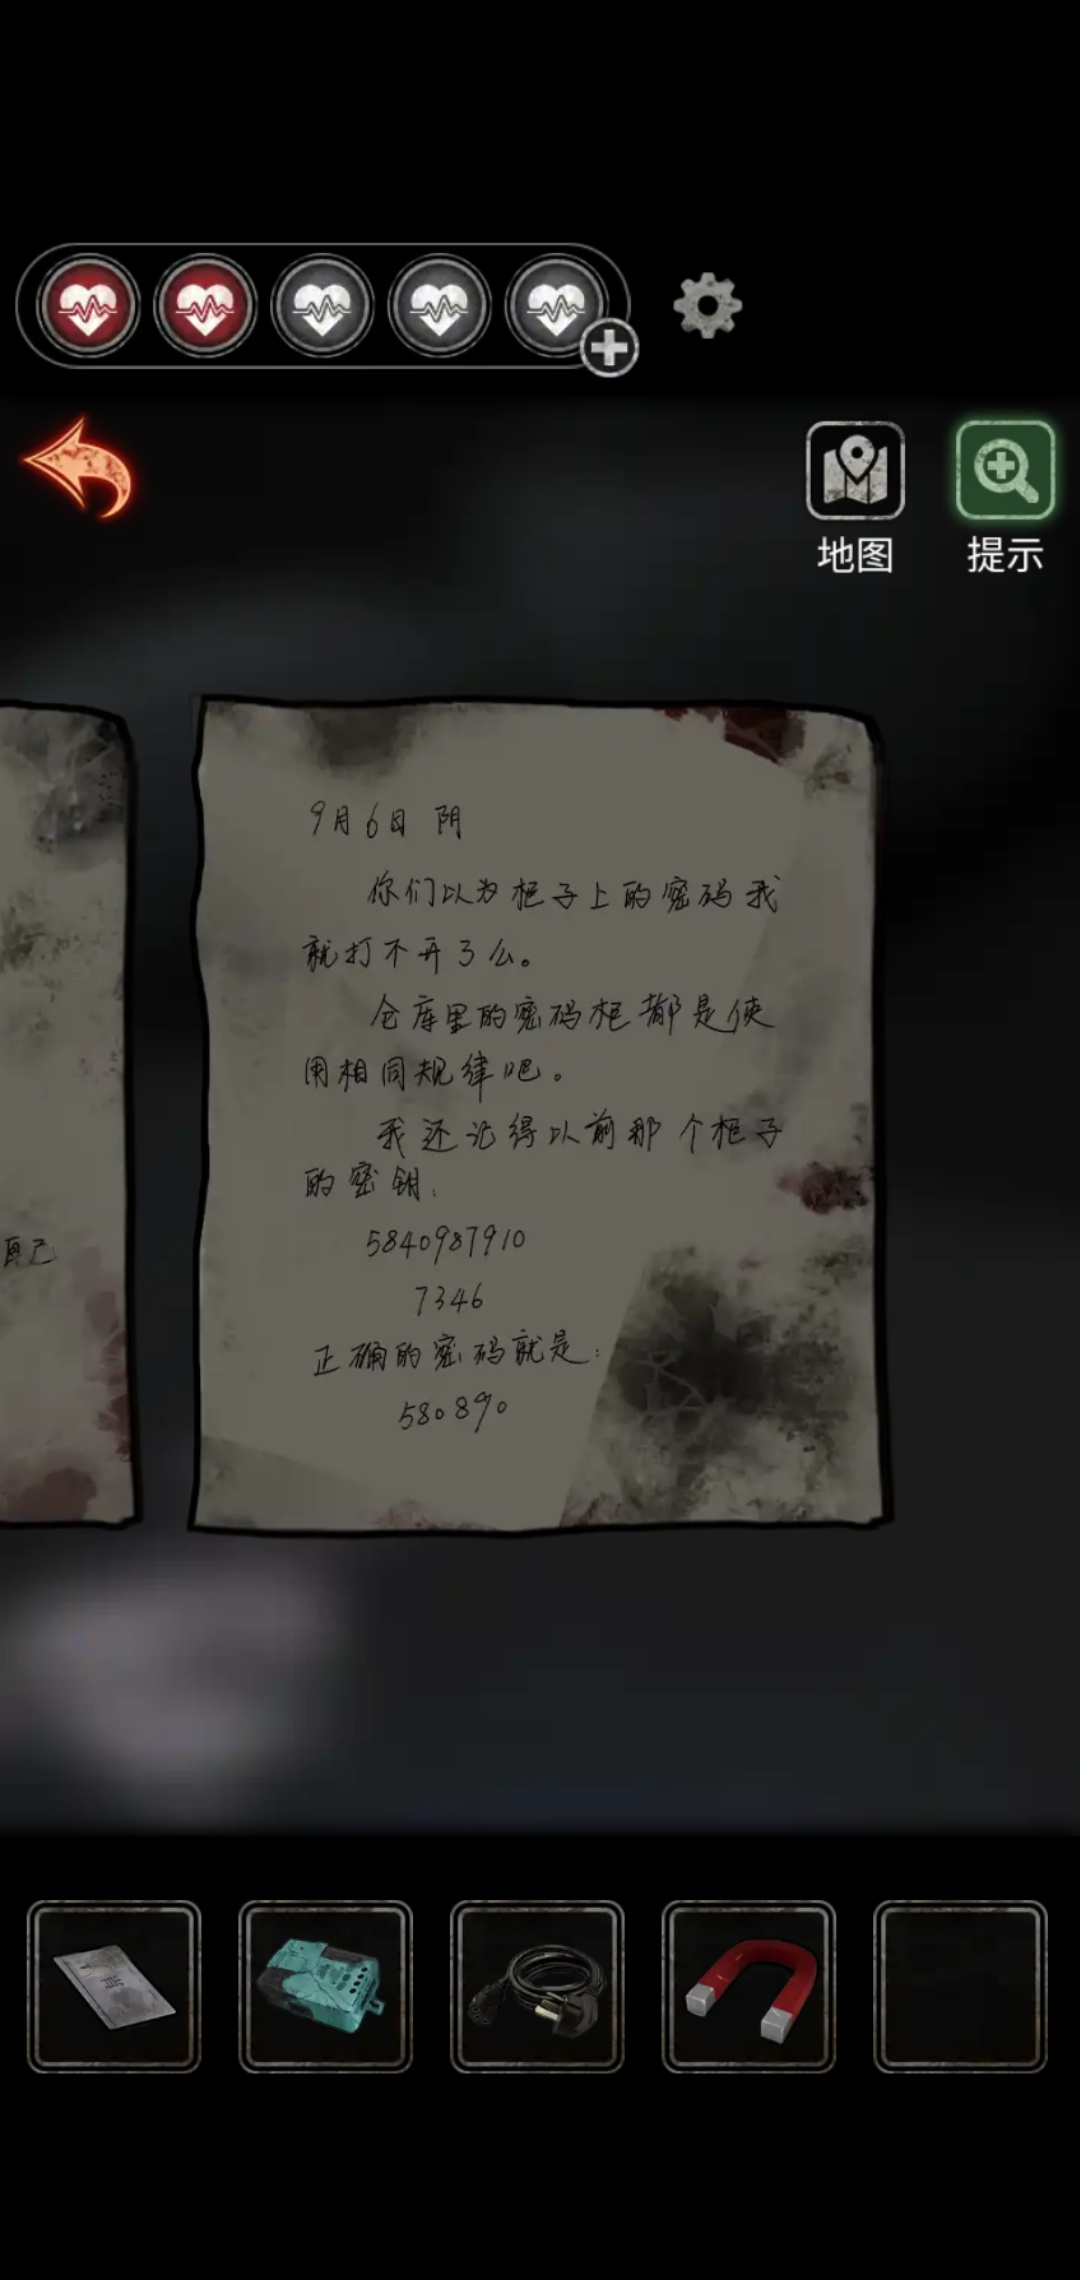 地图
提示
9月6日 阴
你们以为柜子上的密码我
就打不开了么。
仓库里的密码柜都是使
用相同规律吧。
我还记得以前那个柜子
的密钥:
自己
5840987910
7346
正确的密码就是:
580890